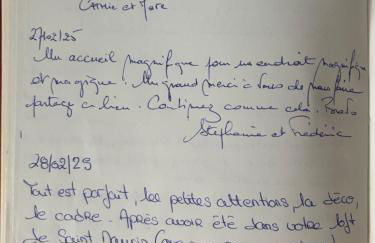 Carrie et Marc
27/02/25
Un accueil magnifique pour un endroit magnifique
et magique. Un grand merci à vous de nous faire
partager ce lieu. Continuez comme cela. Bravo
Stéphanie et Frédéric
28/02/25
Tout est parfait, les petites attentions, la déco,
le cadre. Après avoir été dans votre loft
de Saint